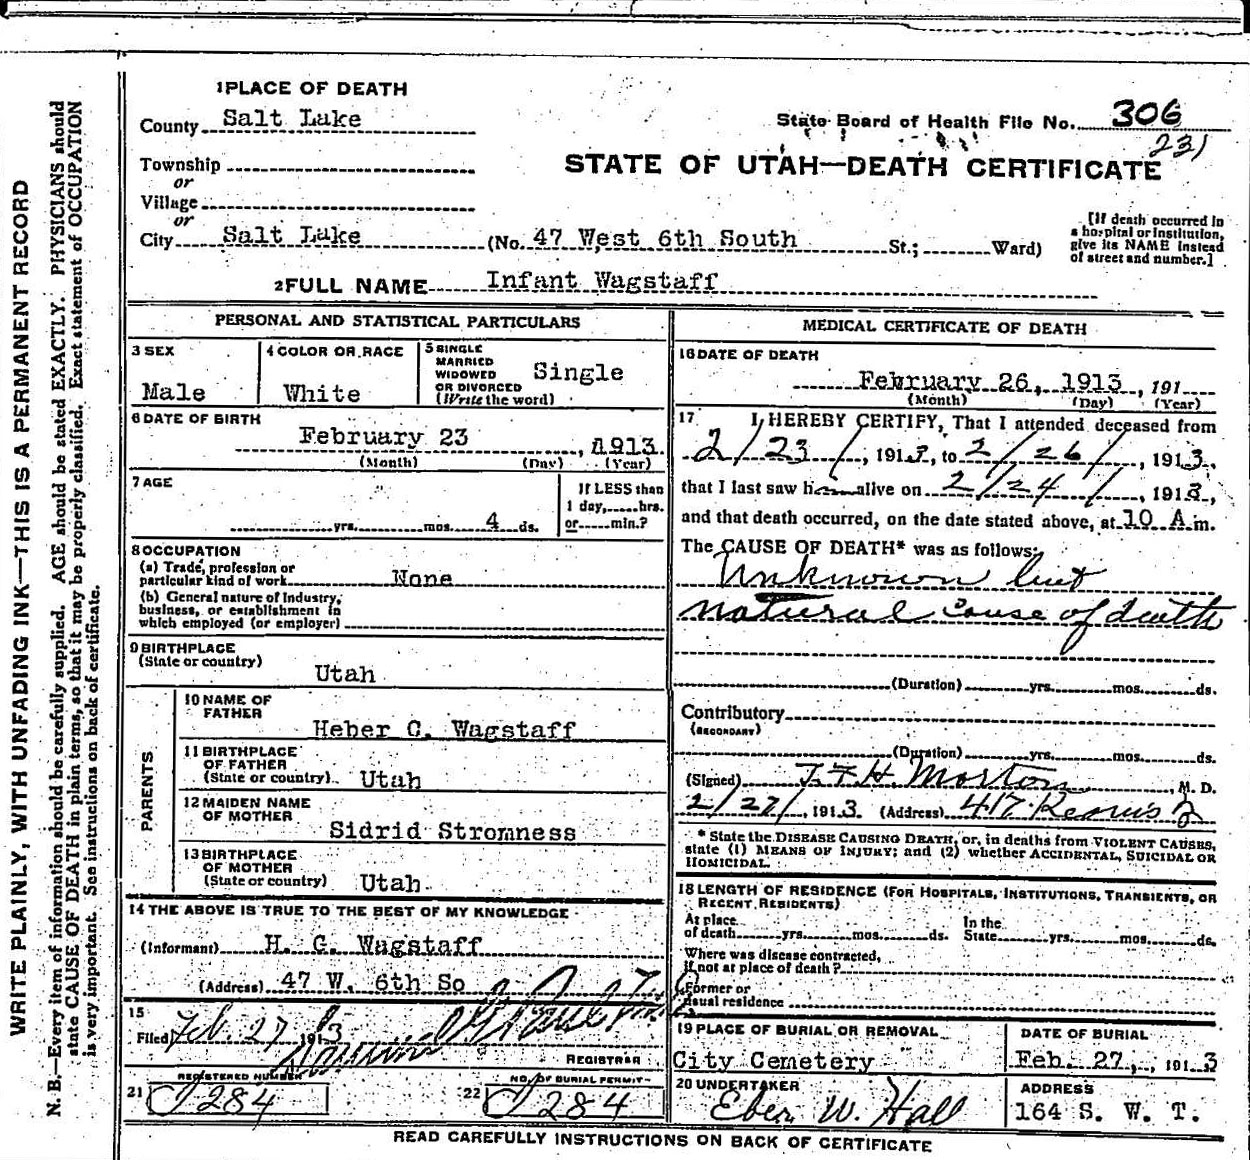 WRITE PLAINLY, WITH UNFADING INK—THIS IS A PERMANENT RECORD
N. B.—Every item of information should be carefully supplied. AGE should be stated EXACTLY. PHYSICIANS should
state CAUSE OF DEATH in plain terms, so that it may be properly classified. Exact statement of OCCUPATION
is very important. See instructions on back of certificate.
1 PLACE OF DEATH
County Salt Lake
State Board of Health File No. 306
231
Township
STATE OF UTAH—DEATH CERTIFICATE
or
Village
or
City Salt Lake (No. 47 West 6th South St.; Ward)
[If death occurred in
a hospital or institution,
give its NAME instead
of street and number.]
2 FULL NAME Infant Wagstaff
PERSONAL AND STATISTICAL PARTICULARS
3 SEX
Male
4 COLOR OR RACE
White
5 SINGLE
MARRIED
WIDOWED
OR DIVORCED
(Write the word)
Single
6 DATE OF BIRTH
February 23, 1913
(Month) (Day) (Year)
7 AGE
yrs. mos. 4 ds.
If LESS than
1 day, hrs.
or min.?
8 OCCUPATION
(a) Trade, profession or
particular kind of work None
(b) General nature of Industry,
business, or establishment in
which employed (or employer)
9 BIRTHPLACE
(State or country)
Utah
PARENTS
10 NAME OF
FATHER
Heber C. Wagstaff
11 BIRTHPLACE
OF FATHER
(State or country) Utah
12 MAIDEN NAME
OF MOTHER
Sidrid Stromness
13 BIRTHPLACE
OF MOTHER
(State or country) Utah
14 THE ABOVE IS TRUE TO THE BEST OF MY KNOWLEDGE
(Informant) H. C. Wagstaff
(Address) 47 W. 6th So
15
Filed Feb. 27 1913
REGISTRAR
REGISTERED NUMBER
21 284
NO. OF BURIAL PERMIT
22 284
MEDICAL CERTIFICATE OF DEATH
16 DATE OF DEATH
February 26, 1913, 191
(Month) (Day) (Year)
17 I HEREBY CERTIFY, That I attended deceased from
2/23/, 1913, to 2/26/, 1913,
that I last saw him alive on 2/24/, 1913,
and that death occurred, on the date stated above, at 10 A m.
The CAUSE OF DEATH* was as follows:
Unknown but
natural cause of death
(Duration) yrs. mos. ds.
Contributory
(SECONDARY)
(Duration) yrs. mos. ds.
(Signed) Morton, M. D.
2/27/, 1913 (Address) 417 Kearns
* State the DISEASE CAUSING DEATH, or, in deaths from VIOLENT CAUSES,
state (1) MEANS OF INJURY; and (2) whether ACCIDENTAL, SUICIDAL OR
HOMICIDAL.
18 LENGTH OF RESIDENCE (FOR HOSPITALS, INSTITUTIONS, TRANSIENTS, OR
RECENT RESIDENTS)
At place
of death yrs. mos. ds.
In the
State yrs. mos. ds.
Where was disease contracted,
if not at place of death?
Former or
usual residence
19 PLACE OF BURIAL OR REMOVAL
City Cemetery
DATE OF BURIAL
Feb. 27, 1913
20 UNDERTAKER
Eber W. Hall
ADDRESS
164 S. W. T.
READ CAREFULLY INSTRUCTIONS ON BACK OF CERTIFICATE